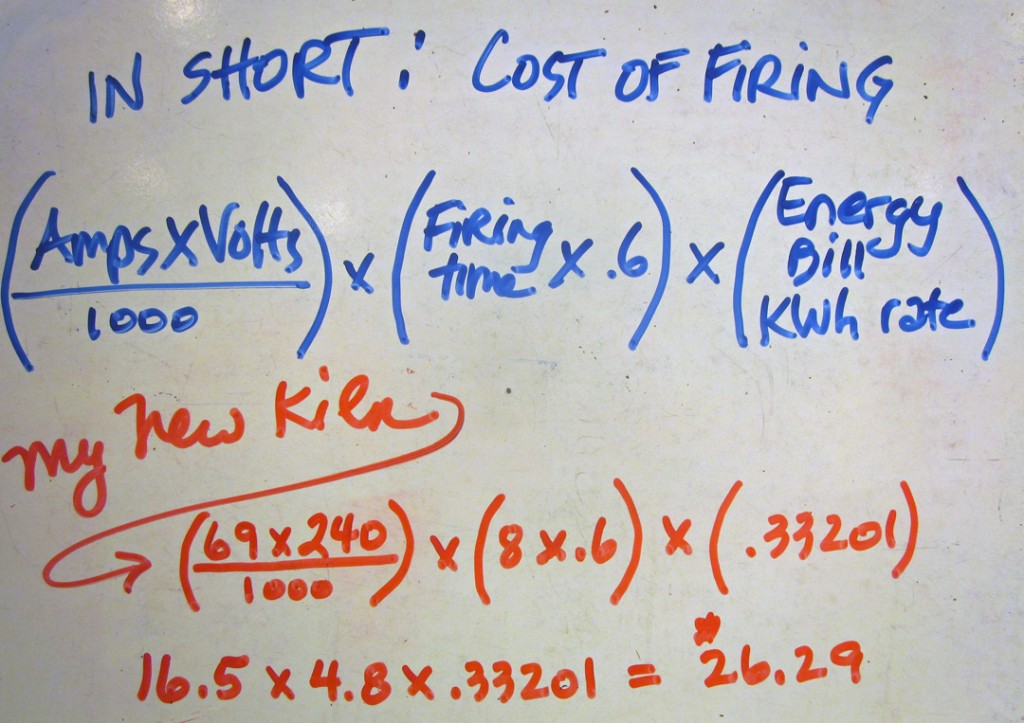 IN SHORT: COST OF FIRING
(Amps X Volts / 1000) x (Firing time x .6) x (Energy Bill KWh rate)
My new Kiln
(69 x 240 / 1000) x (8 x .6) x (.33201)
16.5 x 4.8 x .33201 = $26.29